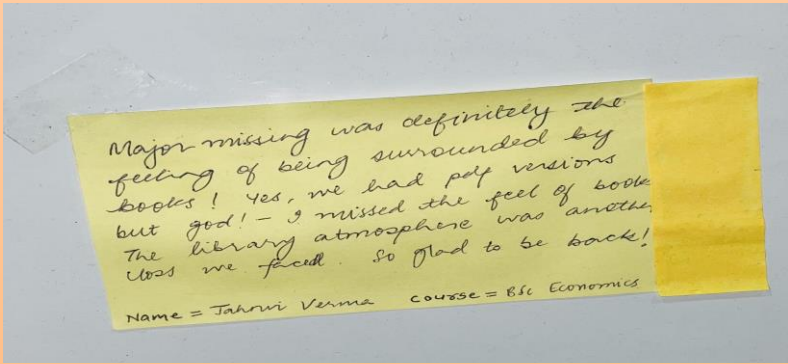 Major missing was definitely the
feeling of being surrounded by
books! Yes, we had pdf versions
but god! - I missed the feel of books
The library atmosphere was another
loss we faced. So glad to be back!
Name = Jahnvi Verma Course = BSc Economics